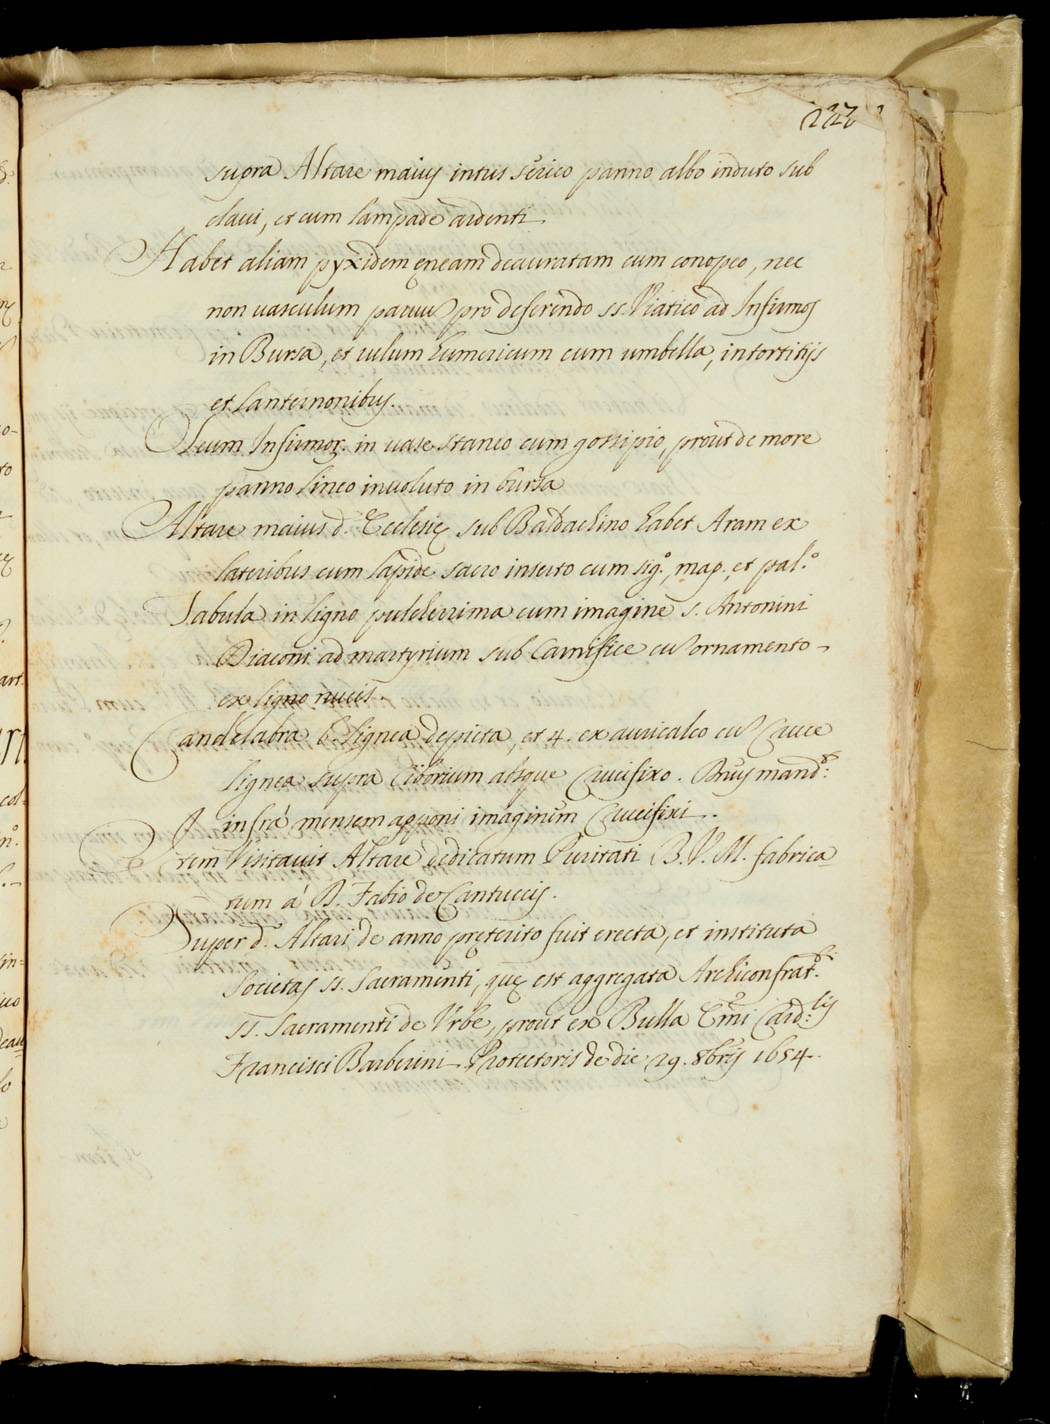 222
supra Altare maius intus serico panno albo induto sub
claui, et cum lampade ardenti.
Habet aliam pyxidem ęneam deauratam cum conopeo, nec
non uasculum paruũ pro deferendo SS. Viatico ad Infirmos
in Bursa, et uelum humericum cum umbella, intortitijs
et lanternonibus.
Oleum Infirmoꝝ. in uase staneo cum gossipio, prout de more
panno lineo inuoluto in bursa
Altare maius d. Ecclesię sub Baldachino habet Aram ex
lateribus cum lapide sacro inserto cum lig.º, map., et pal.º
Tabula in ligno pulcherrima cum imagine S. Antonini
Diaconi ad martyrium sub Carnifice cũ ornamento
ex ligno nucis.
Candelabra 6. lignea depicta, et 4. ex auricalco cũ Cruce
lignea supra Ciborium absque Crucifixo.
infrà mensem apponi imaginem Crucifixi.
Visitauit Altare dedicatum Puritati B. V. M. fabrica-
tum à D. Fabio de Cantuccis.
Super d.º Altari de anno pręterito fuit erecta, et instituta
Societas SS. Sacramenti, quę est aggregata Archiconfrat.ti
SS. Sacramenti de Vrbe, prout ex Bulla Emi Card:lis
Francisci Barberini Protectoris de die 29. 8bris 1654.